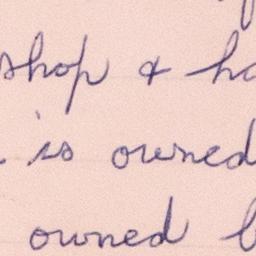 shop &
is owned
owned